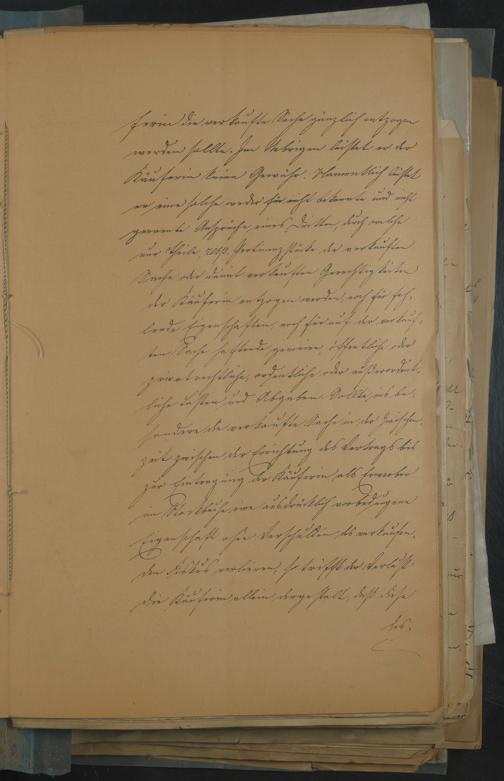 ferin die verkaufte Sache gänzlich entzogen
werden sollte. Im Uebrigen leistet er der
Käuferin keine Gewähr. Namentlich leistet
er eine solche weder für nicht bekannte und nicht
genannte Ansprüche eines Dritten, durch welche
nur Theile resp. Pertinenzstücke der verkauften
Sache oder damit verkauften Gerechtigkeiten
der Käuferin entzogen werden, noch für feh-
lende Eigenschaften, noch für auf der verkauf-
ten Sache haftende gemeine, öffentliche oder
privatrechtliche, ordentliche oder außerordent-
liche Lasten und Abgaben. Sollte insbe-
sondere die verkaufte Sache in der Zwischen-
zeit zwischen der Errichtung des Vertrags bis
zur Eintragung der Käuferin als Erwerber
im Stockbuche eine ausdrücklich vorbedungene
Eigenschaft ohne Verschulden des verkaufen-
den Fiskus verlieren, so trifft der Verlust
die Käuferin allein, dergestalt, daß diese